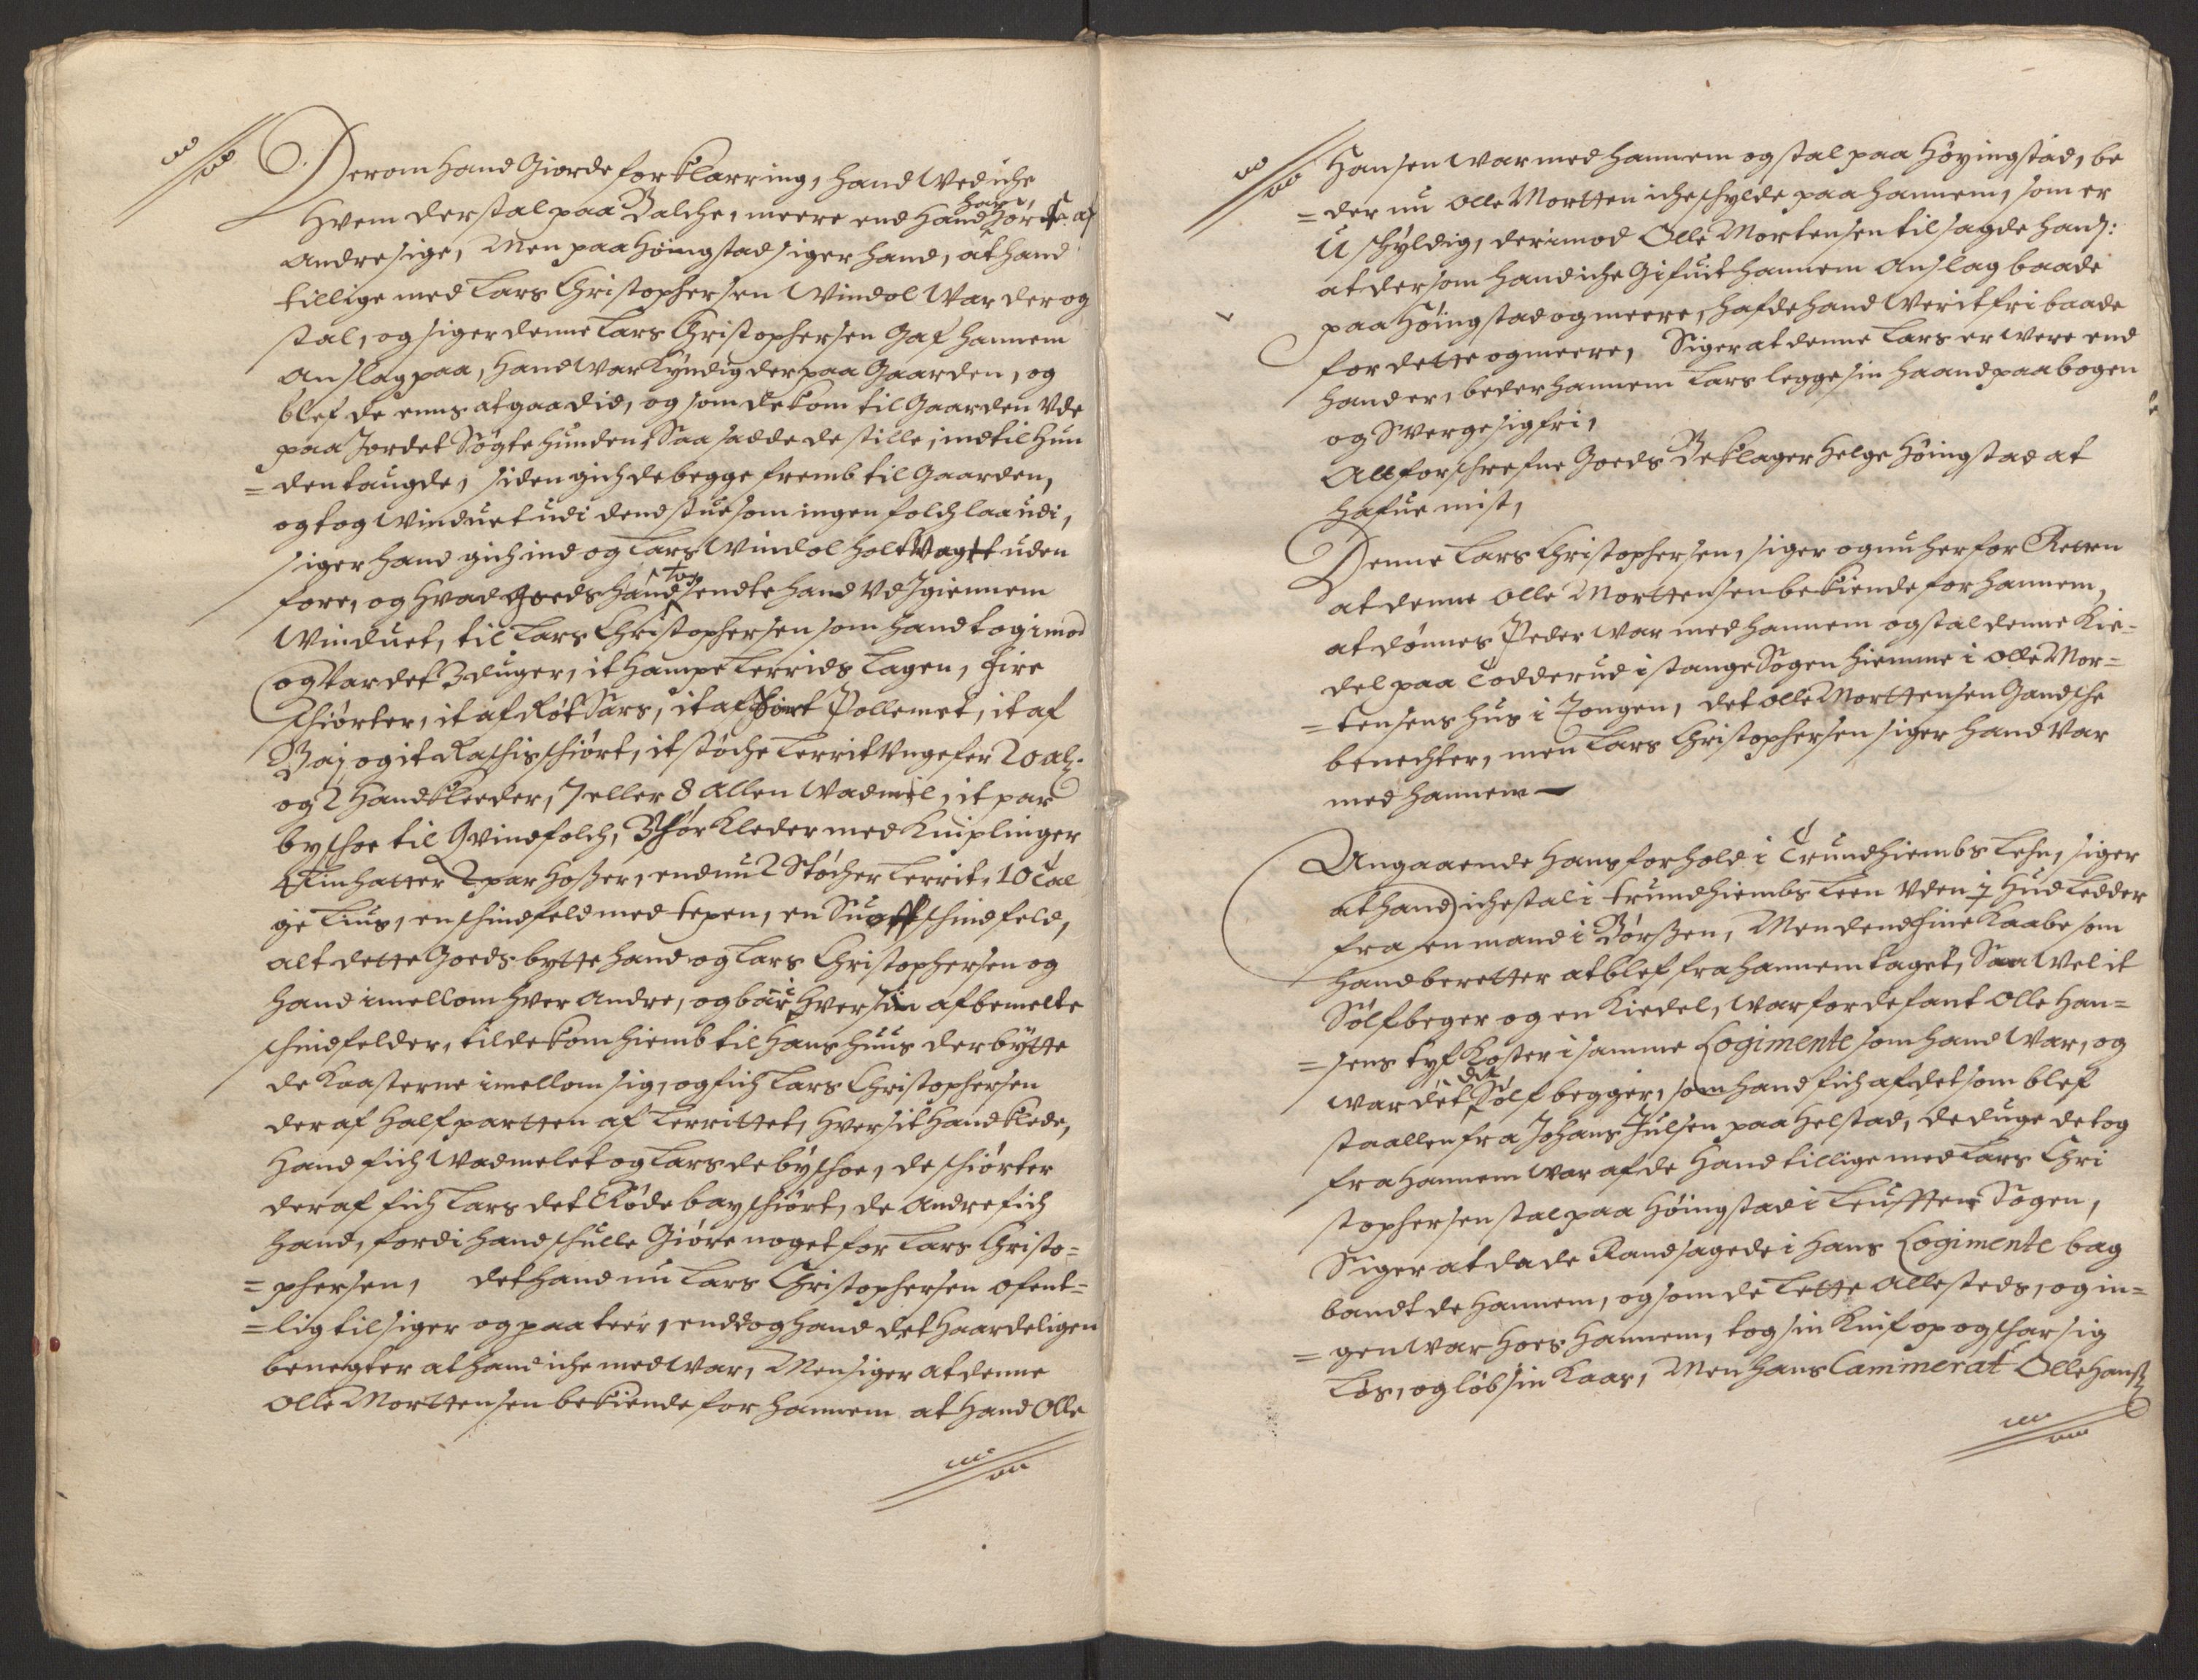 Derom hand Giorde forklarring, hand Wed iche
hvem der stal paa Balche, meere end hand haver hört af
andre sige, Men paa Höingstad siger hand, at hand
tillige med Lars Christophersen Windol War der og
stal, og siger denne Lars Christophersen Gaf hannem
anslag paa, hand War kyndig der paa Gaarden, og
blef de enns at gaa did, og som de kom til Gaarden Ude
paa Jordet Sögte hunden, Saa sadde de stille indtil hun
= den taugde, siden gich de begge fremb til Gaarden,
og tog Winduet udi dend stue som ingen folch laa udi,
siger hand gich ind og Lars Windol holt Wagt uden
fore, og hvad goeds hand tog sendte hand Ud Igiennem
Winduet, til Lars Christophersen som hand tog imod
og Var det 3 duger, it hampe Lerrids Lagen, fire
schiörter, it af Röt Sars, it af Pollemet, it af
Baj og it schiört, it støche Lerrit Ungefer 20 al:
og 2 handkleder, 7 eller 8 allen Wadmel, it par
by schoe til Qvindfolch, 3 förkleder med Kniplinger
4 Linhatter 2 par Hoßer, endnu 2 Støcher Lerrit, 10 Tal
ge Lius, en schindfeld med tepen, en schindfeld,
alt dette Goeds bytte hand og Lars Christophersen og
hand imellom hver andre, og bar hver sin af bemelte
schindfelder, til de kom hiemb til hans huus der bytte
de Kaasterne imellom sig, og fich Lars Christophersen
der af halfpartten af Lerrittet, hver sit handklede,
hand fich Wadmelet og Lars de byschoe, de schiörter
der af fich Lars det Röde bayschiört, de andre fich
hand, fordi hand schulle Giöre noget for Lars Christo=
= phersen, det hand nu Lars Christophersen ofent=
= lig tilsiger og paateer, enddog hand det Haardeligen
benegter at hand iche med war, Men siger at denne
Olle Morttensen bekiende for hannem at hand Olle
Hansen war med hannem og stal paa Höyingstad, be
= der nu Olle Mortten iche schylde paa hannem, som er
Uschyldig, derimod Olle Mortensen tilsagde hand:
at dersom hand iche Gifuit hannem Anslag baade
paa Höingstad og meere, hafde hand Werit fri baade
for dette og meere, Siger at denne Lars er Were end
hand er, beder hannem Lars legge sin haand paa bogen
og Swerge sig fri,
All forschrefne Goeds Beklager Helge Höingstad at
hafue mist,
Denne Lars Christophersen, siger og nu her for Retten
at denne Olle Morttensen bekiende for hannem,
at Jönnes Peder War med hannem og stal denne Kie=
del paa Todderud i Stange Sogen hiemme i Olle Mor=
= tensens hus i Jongen, det Olle Morttensen Gandsche
benechter, men Lars Christophersen siger hand Var
med hannem
Angaaende hans forhold i Trundhiembs Lehn, siger
at hand iche stal i trundhiembs Leen Uden 1 hud Ledder
fra en mand i Börßen, Men dend fine Kaabe som
hand beretter at blef fra hannem taget, Saa Wel it
Sölfbeger og en Kiedel, war for de fant Olle Han=
= sens tyf Koster i samme Logimente som hand War, og
War det det Sölfbegger, som hand fich af det som blef
staallen fra Johans Julsen paa Helstad, de duge de tog
fra hannem war af de hand tillige med Lars Chri
stophersen stal paa Höingstad i Leuften Sogen,
Siger at da de Randsagede i hans Logimente bag
bandt de hannem, og som de Lette allesteds, og in=
= gen War hoes hannem, tog sin Knif op og schar sig
Løs, og löb sin Kaas, Men hans Cammerat Olle Hanß